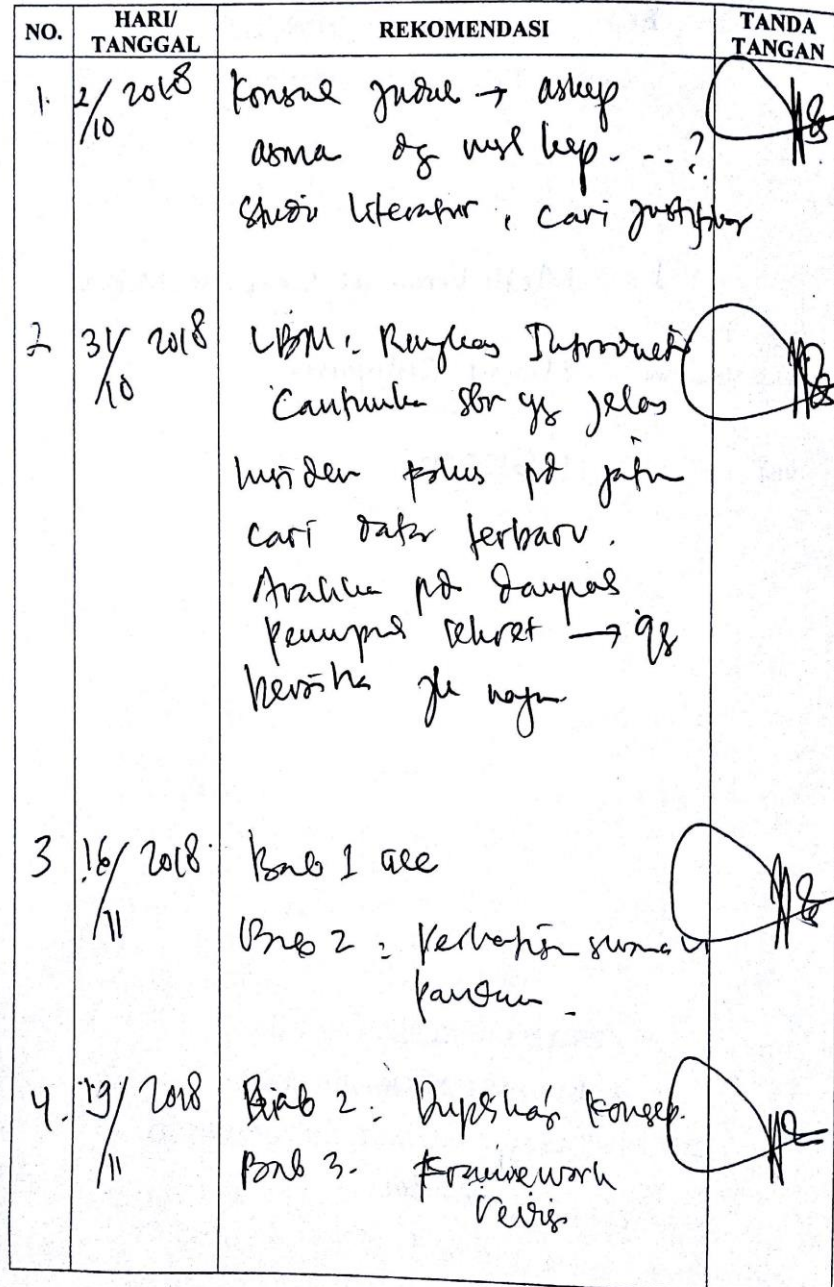 NO. HARI/ TANGGAL REKOMENDASI TANDA TANGAN
1. 2/10 2018 Konsul judul → askep
asma dg msl kep. ...?
Studi literatur, cari
2 31/10 2018 LBM: Ringkas
Cantumka sbr yg jelas
Insiden fokus pd jatim
cari data terbaru.
Arahka pd dampak
sekret → yg
3 16/11 2018 Bab 1 acc
Bab 2: Perbaikan sesuai
panduan.
4. 19/11 2018 Bab 2: konsep.
Bab 3. Framework
revisi